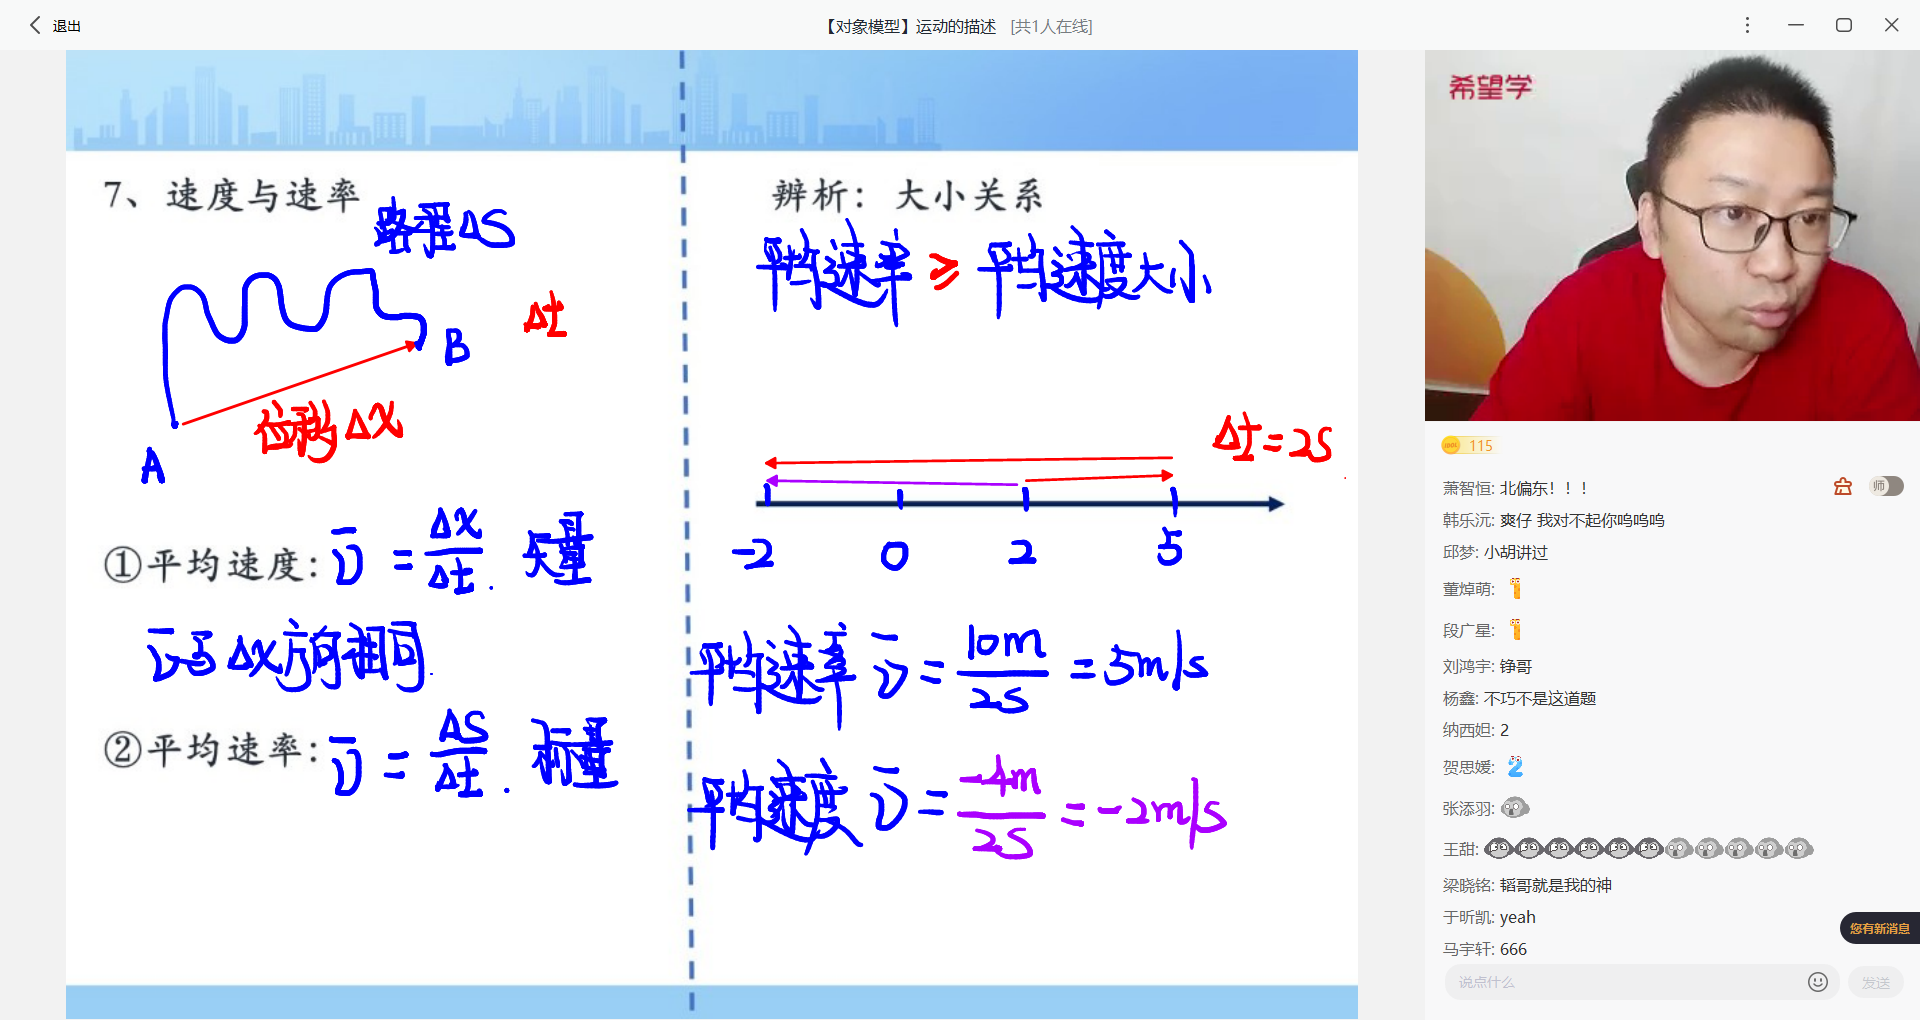 退出
【对象模型】运动的描述 [共1人在线]
7、速度与速率
路程ΔS
Δt
B
位移Δx
A
①平均速度: v̄ = Δx/Δt. 矢量
v̄与Δx方向相同.
②平均速率: v̄ = ΔS/Δt. 标量
辨析：大小关系
平均速率 ≥ 平均速度大小
Δt=2s
-2 0 2 5
平均速率 v̄ = 10m/2s = 5m/s
平均速度 v̄ = -4m/2s = -2m/s
希望学
115
师
萧智恒: 北偏东！！！
韩乐沅: 爽仔 我对不起你呜呜呜
邱梦: 小胡讲过
董焯萌: 1
段广星: 1
刘鸿宇: 铮哥
杨鑫: 不巧不是这道题
纳西妲: 2
贺思媛: 2
张添羽:
王甜:
梁晓铭: 韬哥就是我的神
于昕凯: yeah
马宇轩: 666
您有新消息
说点什么
发送